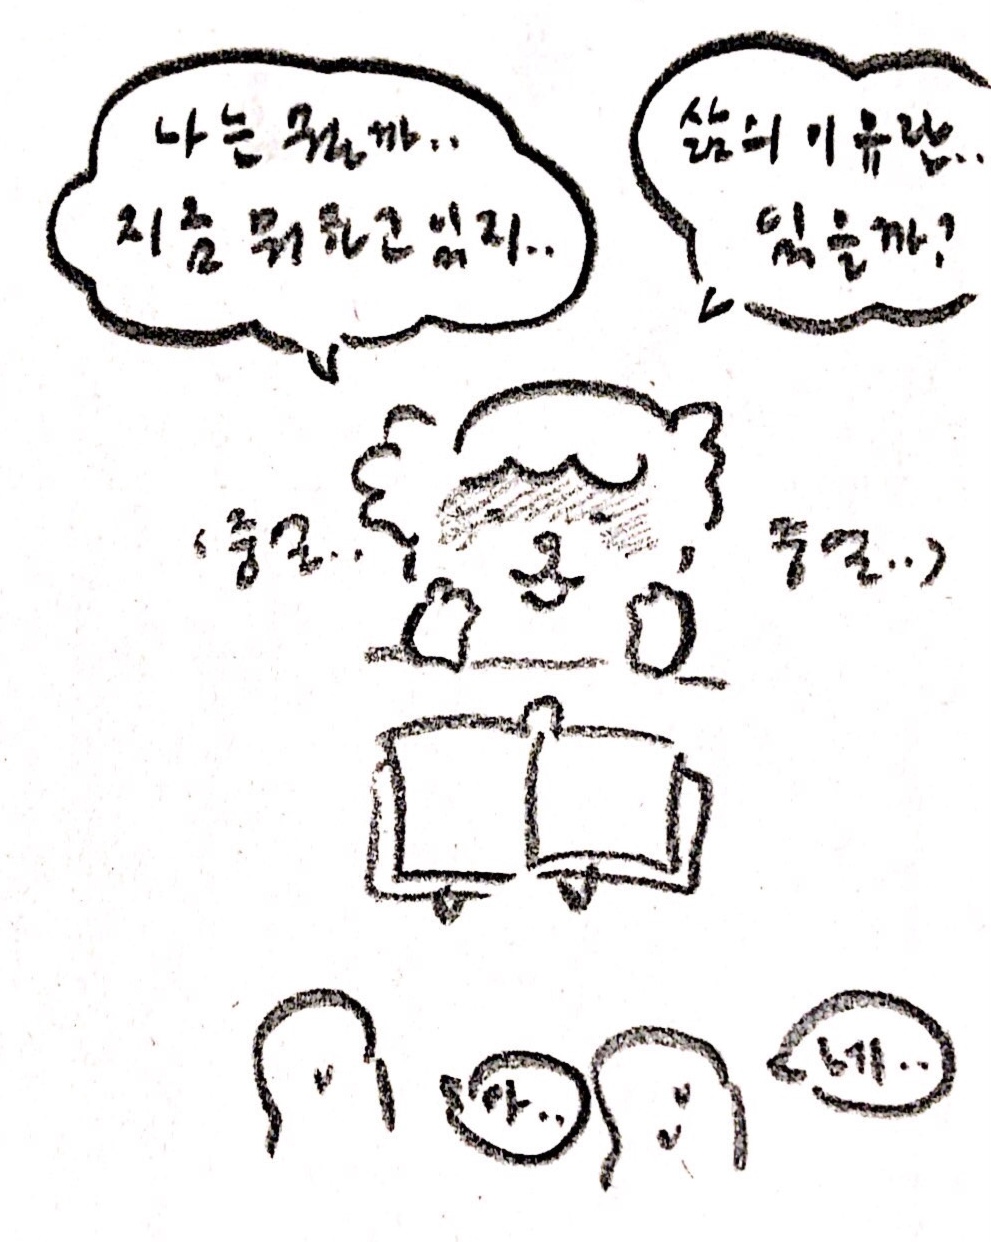 나는 뭘까..
지금 뭐하고 있지..
삶의 이유란..
있을까?
(중얼.. 중얼..)
아..
네..